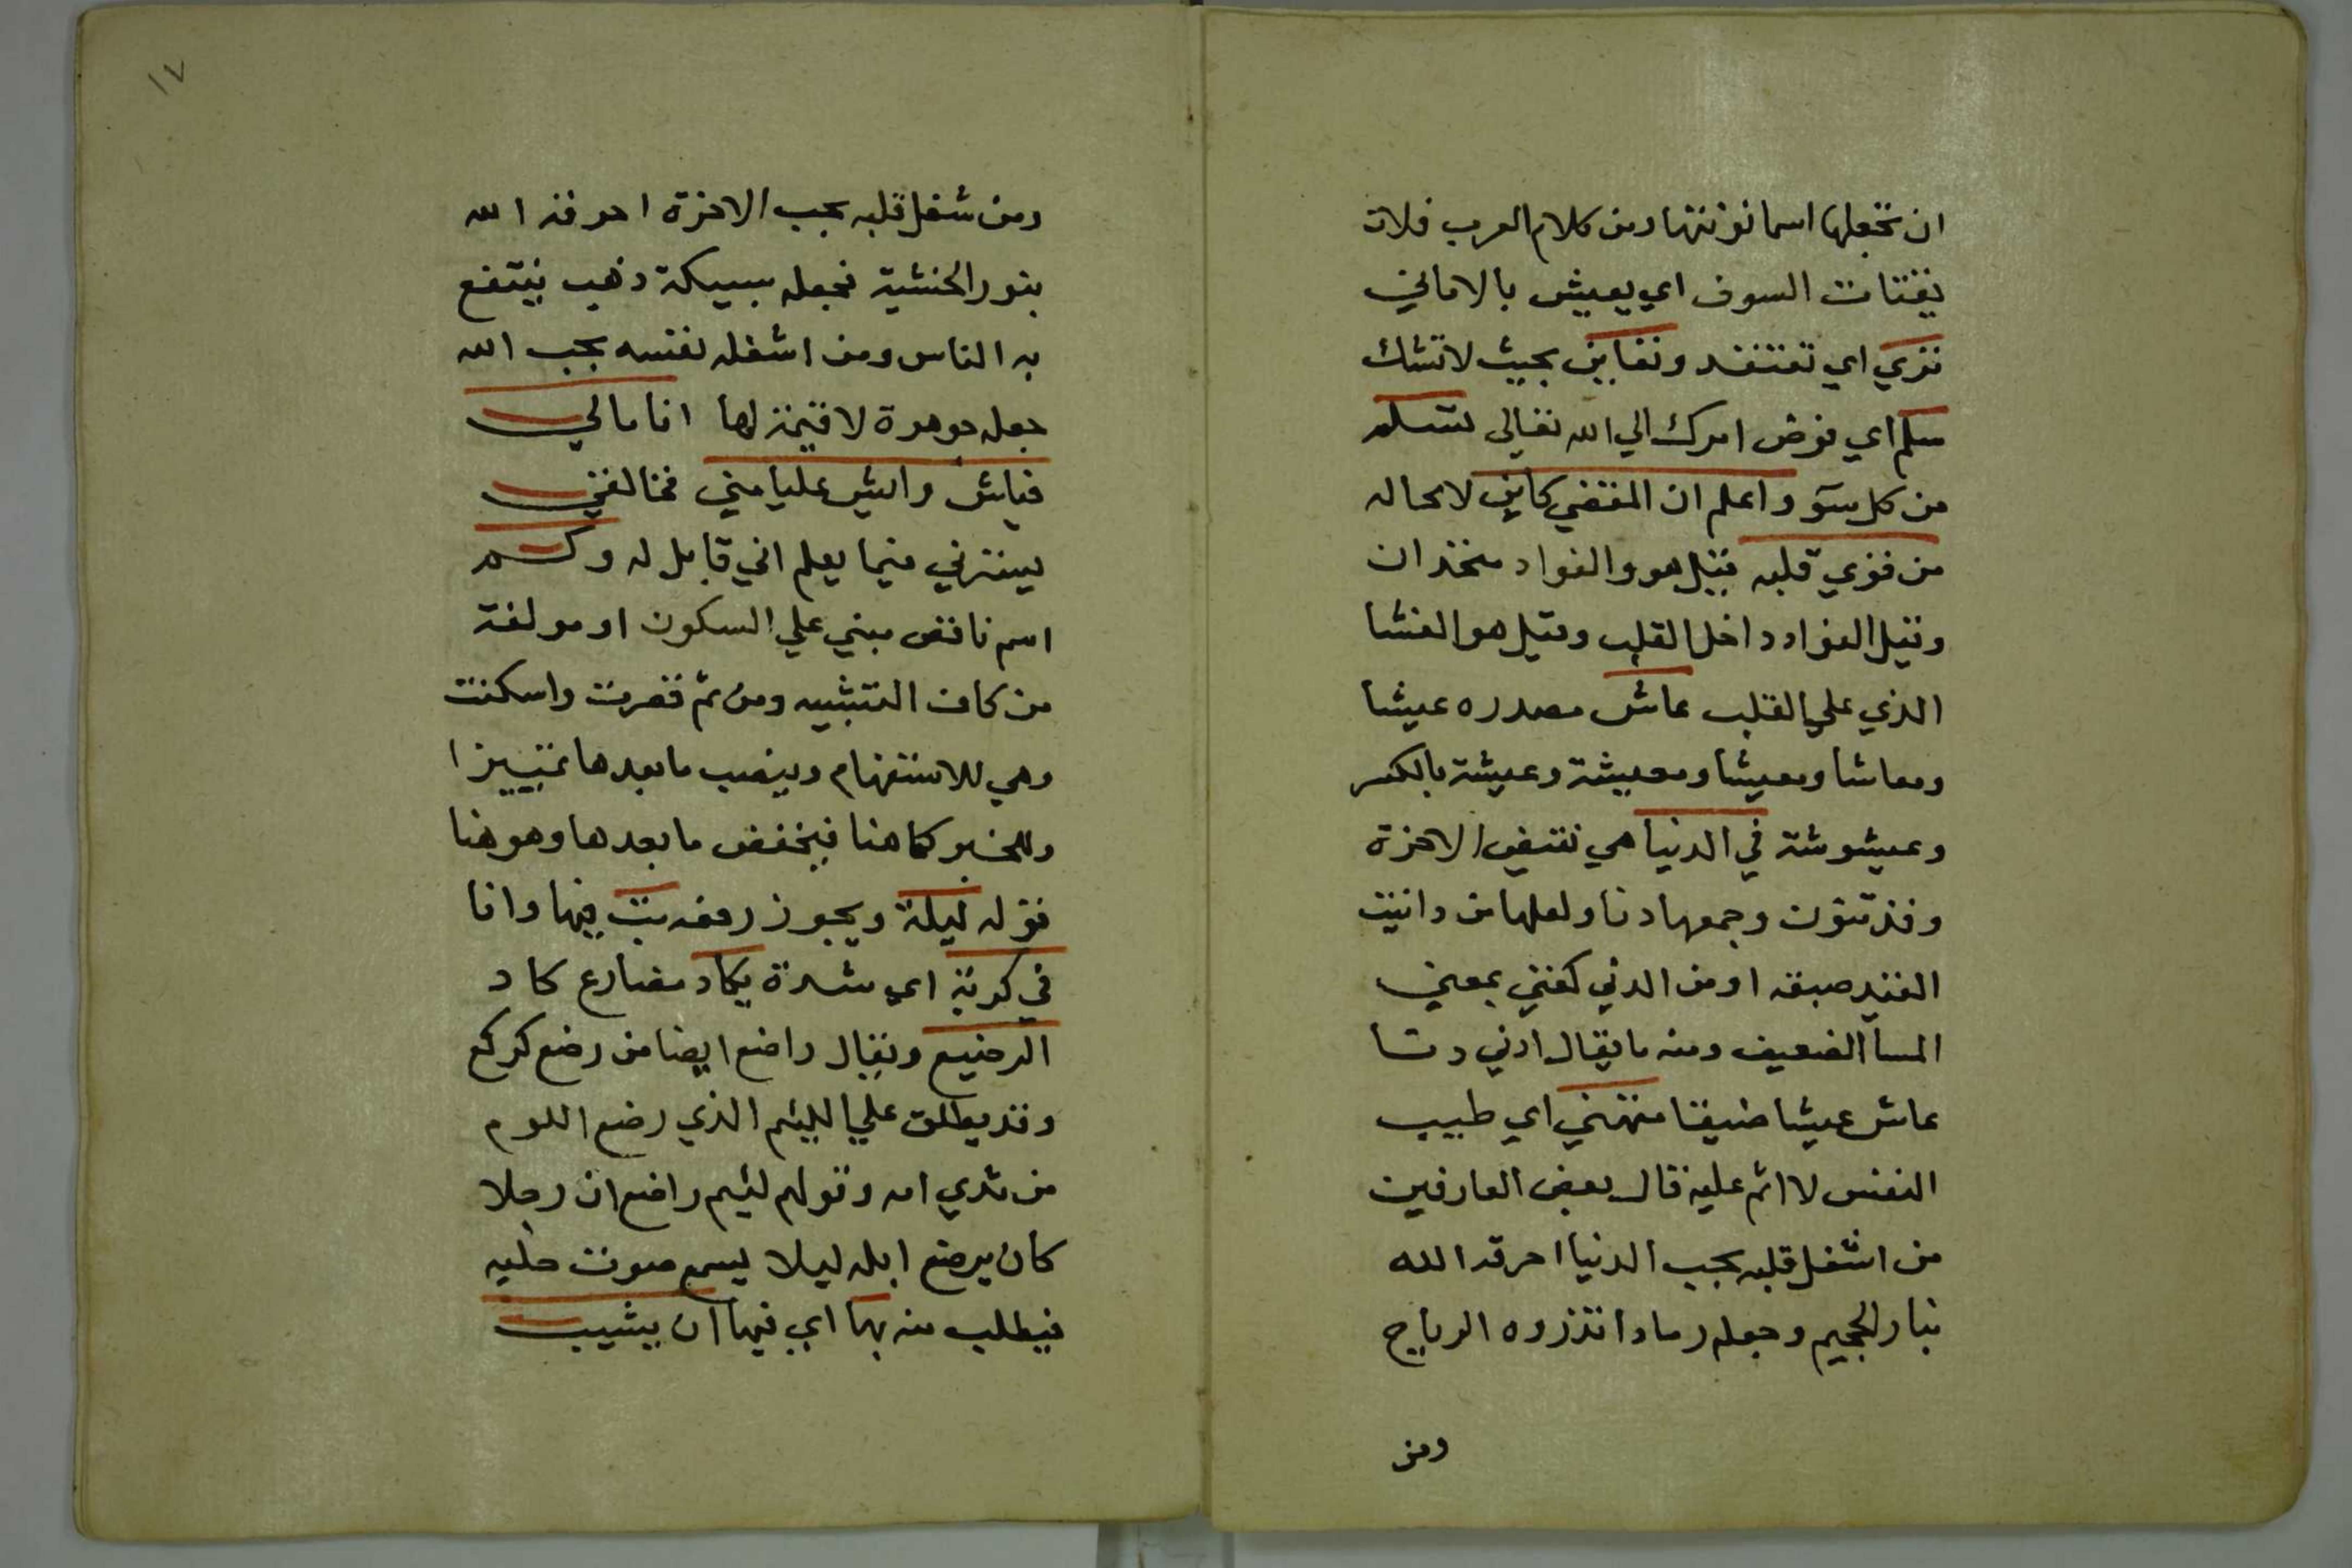 ان تجعلها اسما نونتها ومن كلام العرب فلان
يقتات السوف اي يعيش بالاماني
تري اي تعتقد وتعاين بحيث لا تشك
سلم اي فوض امرك الي الله تعالي تسلم
من كل سوٓ واعلم ان المقضي كاين لا محاله
من قوي قلبه قيل هو والفواد متحدان
وقيل الفواد داخل القلب وقيل هو الغشا
الذي علي القلب عاش مصدره عيشا
ومعاشا ومعيشا ومعيشة وعيشة بالكسر
وعيشوشة في الدنيا هي نقيض الاخرة
وقد تنون وجمعها دنا ولعلها من دانيت
القيد ضيقه او من الدني كغني بمعني
المسا الضعيف ومنه ما يقال ادني دنا
عاش عيشا ضيقا متهني اي طيب
النفس لا اثم عليه قال بعض العارفين
من اشغل قلبه بحب الدنيا احرقه الله
بنار الجحيم وجعله رمادا تذروه الرياح
ومن
١٧
ومن شغل قلبه بحب الاخرة احرقه الله
بنور الخشية فجعله سبيكة ذهب ينتفع
به الناس ومن اشغله نفسه بحب الله
جعله جوهرة لا قيمة لها انا مالي
فياش وايش عليا مني فخالقني
يسترني فيما يعلم اني قابل له وكم
اسم ناقص مبني علي السكون او مولفة
من كاف التشبيه ومن ثم قصرت واسكنت
وهي للاستفهام وينصب ما بعدها تمييزا
وللخبر كما هنا فيخفض ما بعدها وهو هنا
قوله ليلة ويجوز رفعه بت فيها وانا
في كربة اي شدة يكاد مضارع كاد
الرضيع ويقال راضع ايضا من رضع كركع
وقد يطلق علي اللييم الذي رضع اللوم
من ثدي امه وقولهم لئيم راضع ان رجلا
كان يرضع ابله ليلا ليسمع صوت حلبه
فيطلب منه بها اي فيها ان يشيب